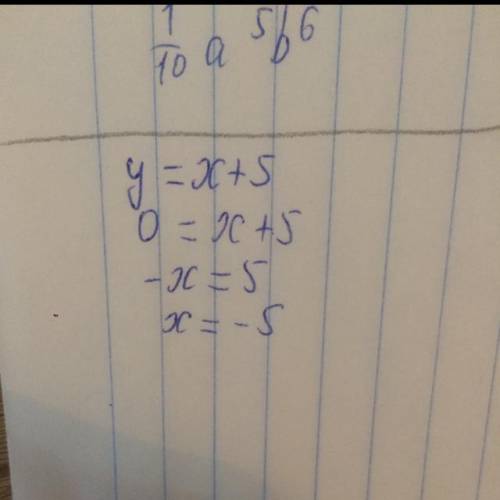 1/10 a⁵b⁶
y = x + 5
0 = x + 5
-x = 5
x = -5